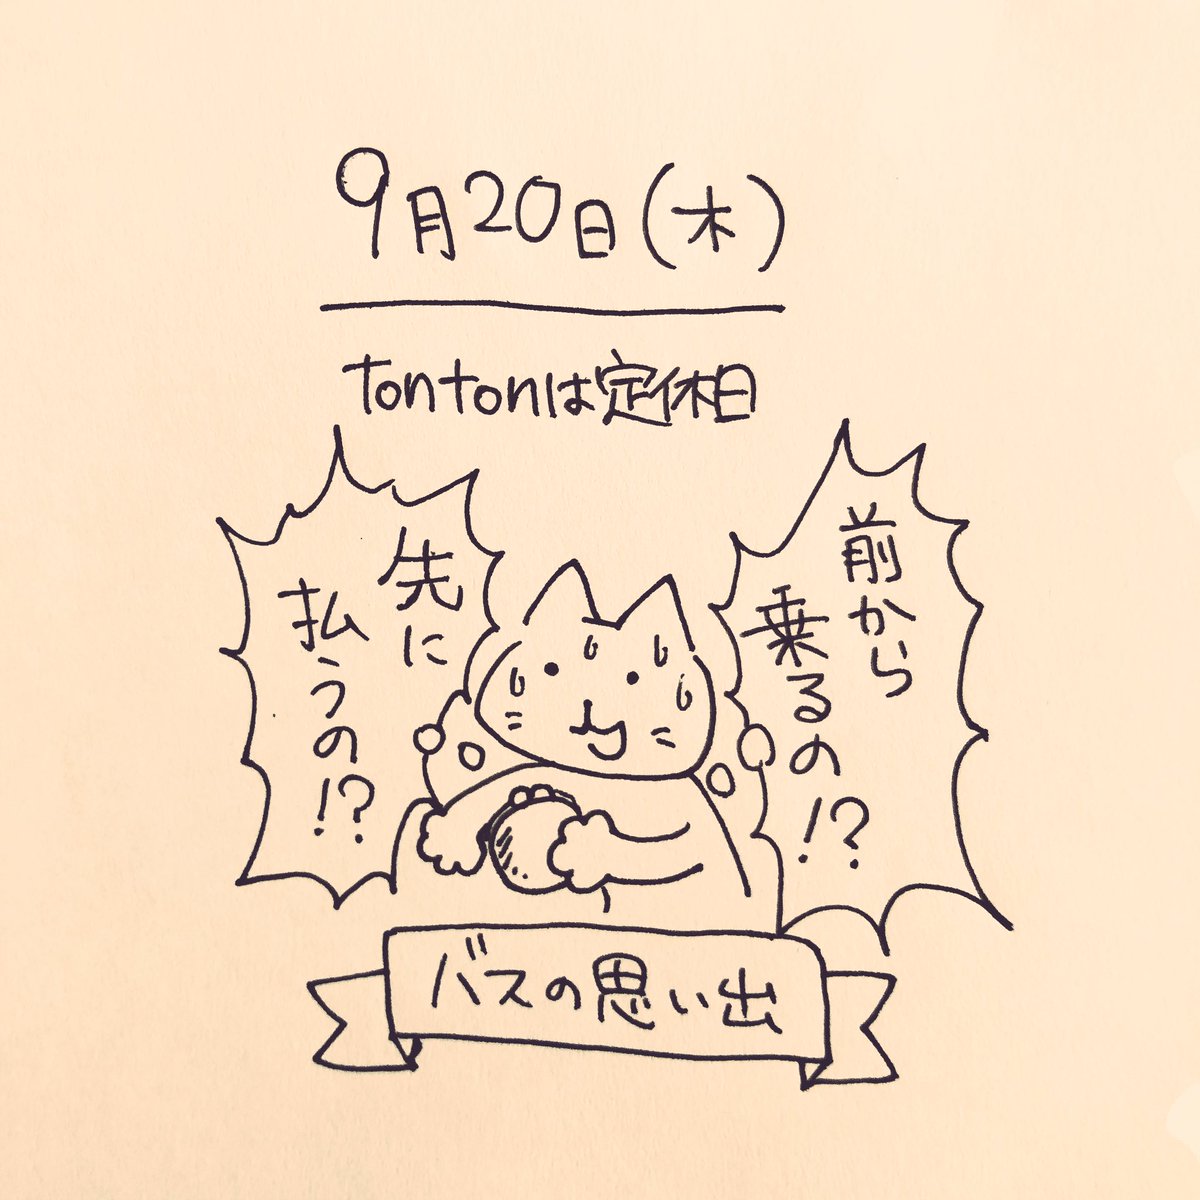 9月20日(木)
tontonは定休日
前から
乗るの!?
先に
払うの!?
バスの思い出